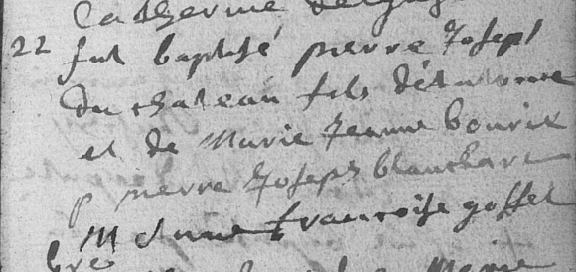 Catherine
22 fut baptisé pierre Joseph
du chateau fils
et de Marie Jeanne bourez
p pierre Joseph blanchart
M Anne francoise gosset